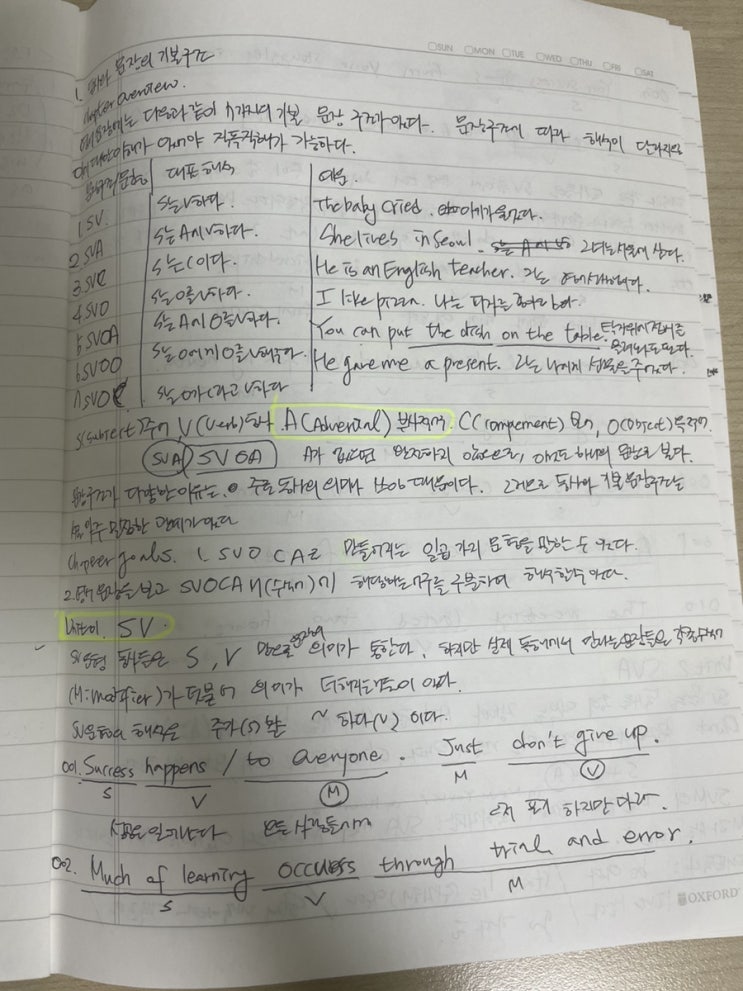 ○SUN ○MON ○TUE ○WED ○THU ○FRI ○SAT
1. 문장의 기본구조
chapter overview.
다음과 같이 7가지의 기본 문장 구조가 있다. 문장구조에 따라 해석이 달라지므로
이해가 있어야 직독직해가 가능하다.
대표해석 예문.
1 SV. S는 V하다. The baby cried. 아기가 울었다.
2 SVA S는 A에 V하다. She lives in Seoul. 그녀는 서울에 산다.
3 SVC S는 C이다. He is an English teacher. 그는 영어선생이다.
4 SVO S는 O를 V하다. I like pizza. 나는 피자를 좋아한다.
5 SVOA S는 A에 O를 V하다. You can put the dish on the table. 탁자위에 접시를
올려놔도 된다.
6 SVOO S는 O에게 O를 V해주다. He gave me a present. 그는 나에게 선물을 주었다.
7 SVOC S는 O가 C라고 V하다
S(subject)주어 V(verb)동사 A(Adverbial) 부사적어. C(complement) 보어, O(object)목적어.
SVA SVOA A가 없으면 완전하지 않으므로, 이것도 하나의 문형으로 보다.
문장구조가 다양한 이유는 주로 동사의 의미와 쓰임 때문이다. 그러므로 동사와 기본 문장구조는
아주 밀접한 관계가 있다
Chapter goals. 1 SVOCA로 만들어지는 일곱가지 문형을 말할 수 있다.
2. 문장을 보고 SVOCAM(수식어)에 해당하는 어구를 구분하여 해석할 수 있다.
Unit 01. SV.
SV문형 동사들은 S, V 만으로 문장의 의미가 통한다. 하지만 실제 독해에서 만나는 문장들은 각종 수식어
(M: modifier)가 덧붙어 의미가 더해지는 것이 많다.
SV문형의 해석은 주어(S)는 ~ 하다(V) 이다.
001. Success happens / to everyone. Just don't give up.
S V M M V
성공은 일어난다 모든 사람들에게 그저 포기 하지만 마라.
002. Much of learning occurs through trial and error.
S V M
OXFORD